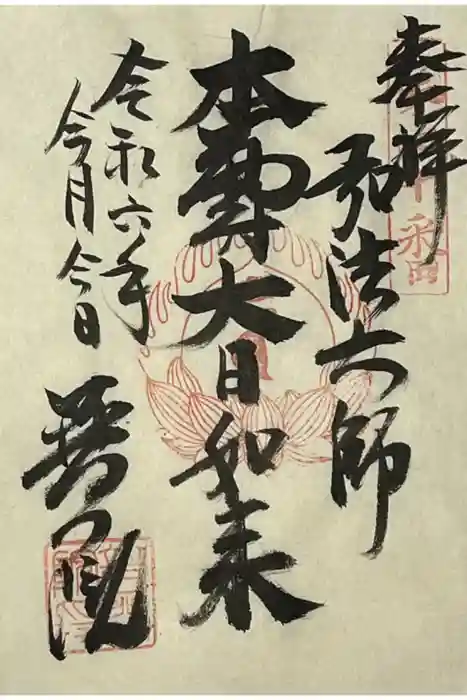 奉拝
弘法大師
本尊大日如来
令和六年
今月今日
普門院